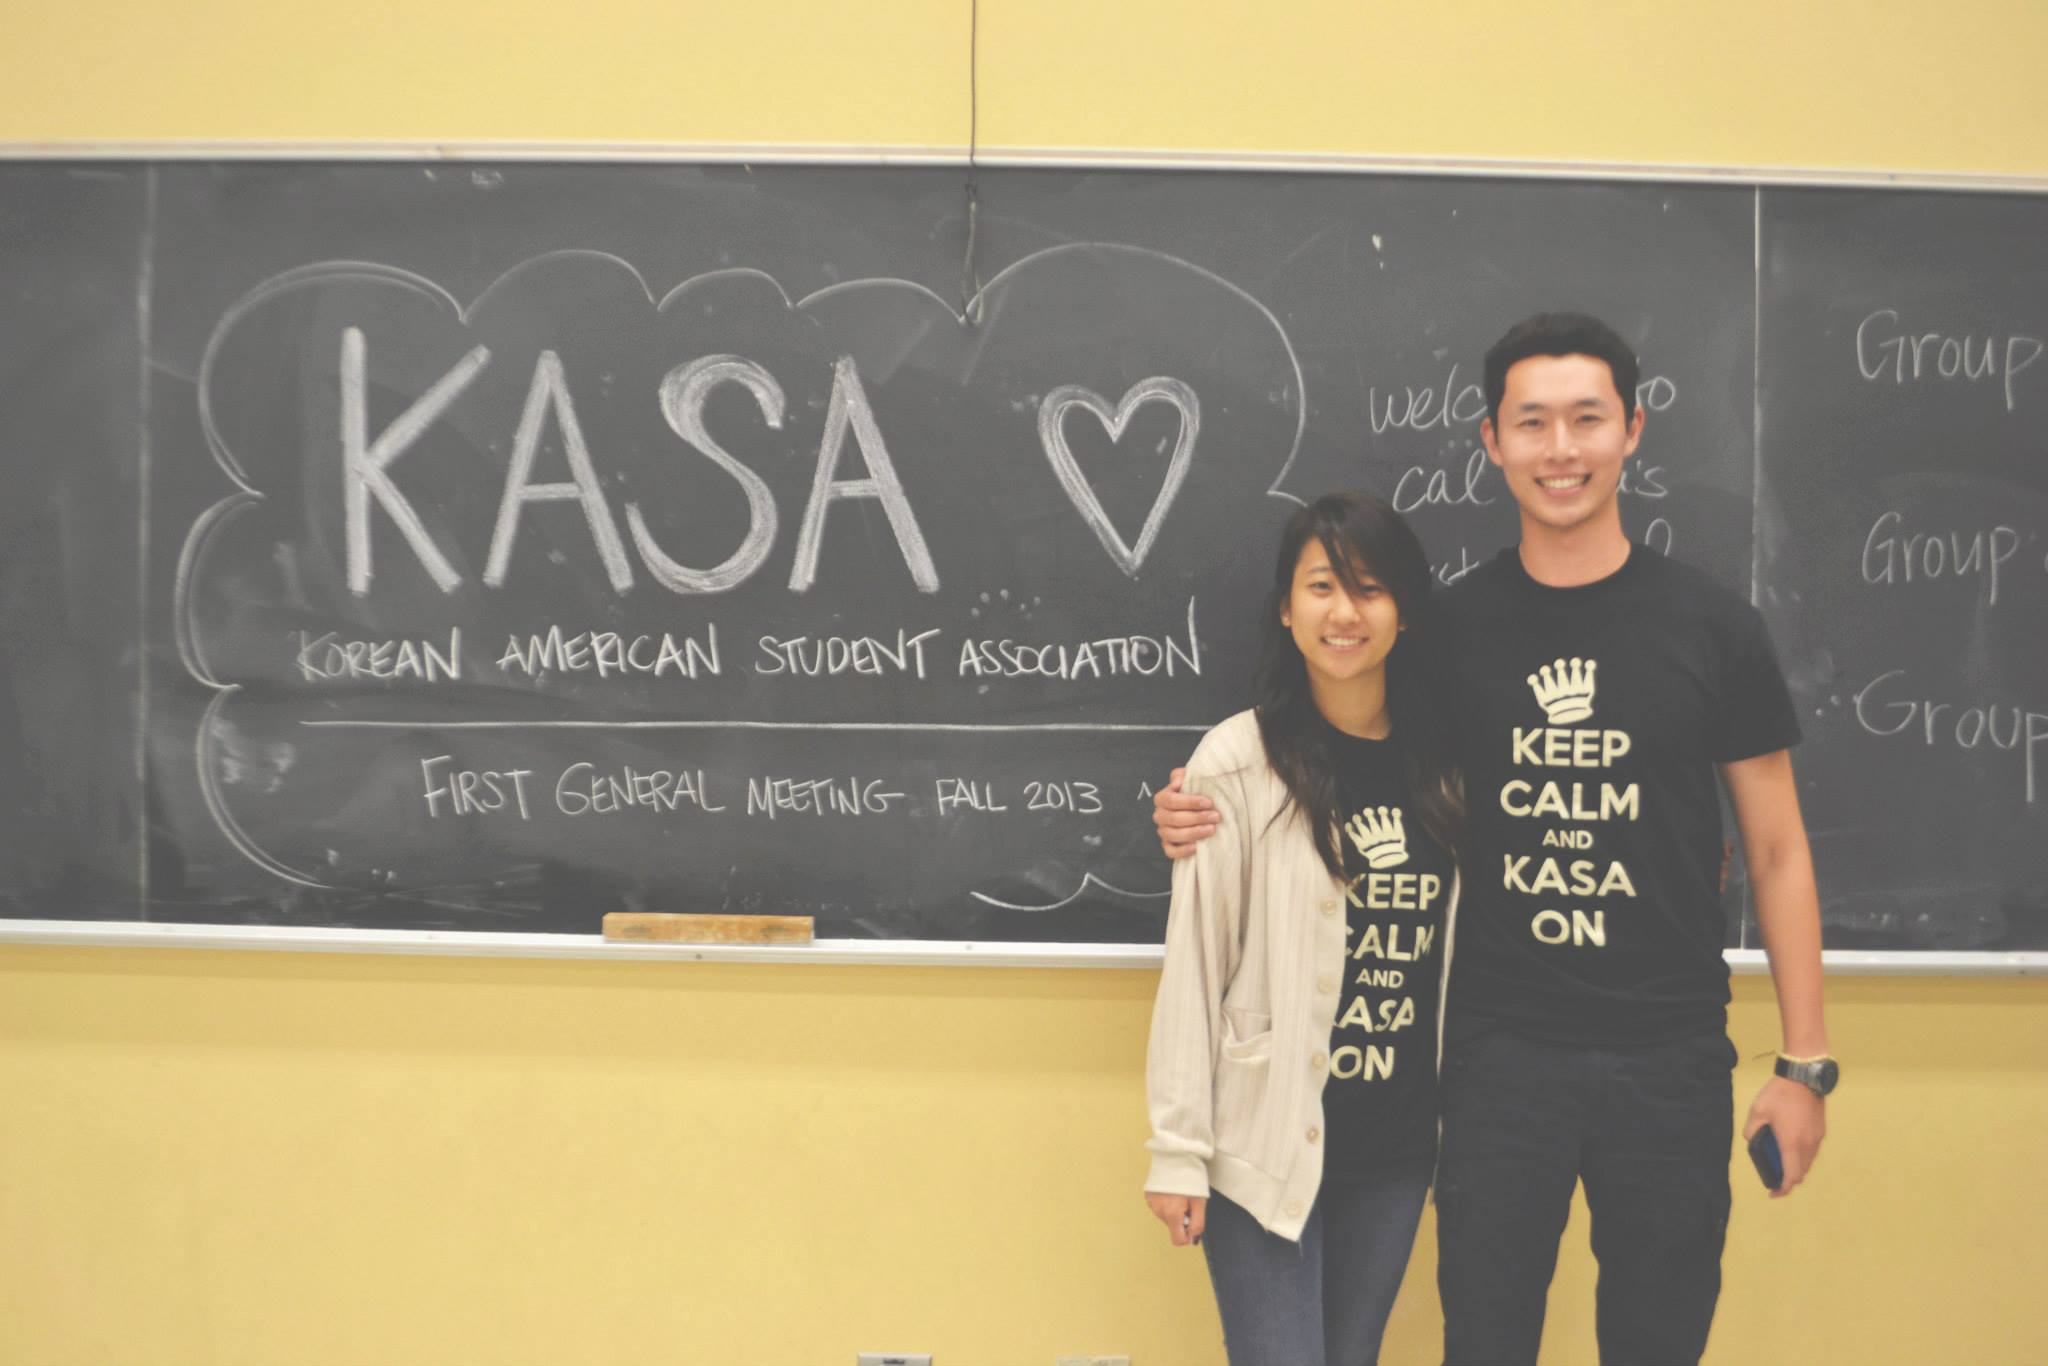 KASA ♡
KOREAN AMERICAN STUDENT ASSOCIATION
FIRST GENERAL MEETING FALL 2013
cal
Group
Group
Group
KEEP
CALM
AND
KASA
ON
KEEP
CALM
AND
KASA
ON